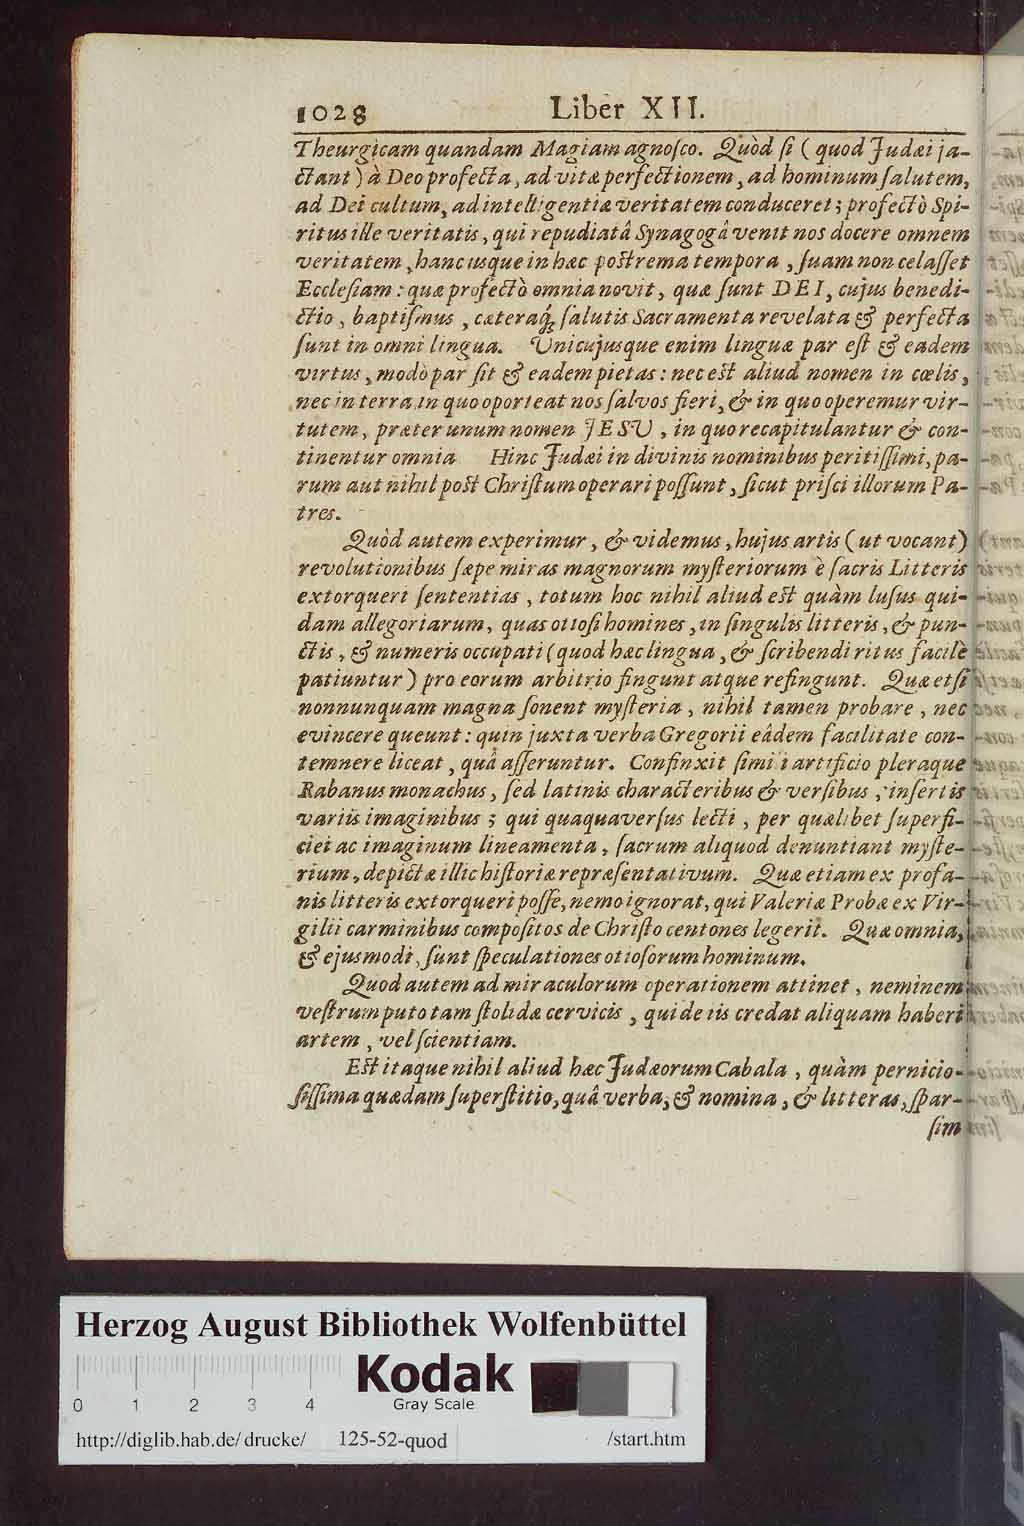 1028 Liber XII.
Theurgicam quandam Magiam agnoſco. Quòd ſi ( quod Judæi ja-
ctant ) à Deo profecta, ad vitæ perfectionem, ad hominum ſalutem,
ad Dei cultum, ad intelligentiæ veritatem conduceret; profectò Spi-
ritus ille veritatis, qui repudiatâ Synagogâ venit nos docere omnem
veritatem, hanc usque in hæc poſtrema tempora, ſuam non celaſſet
Eccleſiam: quæ profectò omnia novit, quæ ſunt DEI, cujus benedi-
ctio, baptiſmus, cæteraq́; ſalutis Sacramenta revelata & perfecta
ſunt in omni lingua. Unicujusque enim linguæ par eſt & eadem
virtus, modò par ſit & eadem pietas: nec eſt aliud nomen in cœlis,
nec in terra in quo oporteat nos ſalvos fieri, & in quo operemur vir-
tutem, præter unum nomen JESU, in quo recapitulantur & con-
tinentur omnia Hinc Judæi in divinis nominibus peritiſſimi, pa-
rum aut nihil poſt Chriſtum operari poſſunt, ſicut priſci illorum Pa-
tres.
Quòd autem experimur, & videmus, hujus artis ( ut vocant )
revolutionibus ſæpe miras magnorum myſteriorum è ſacris Litteris
extorqueri ſententias, totum hoc nihil aliud eſt quàm luſus qui-
dam allegoriarum, quas otioſi homines, in ſingulis litteris, & pun-
ctis, & numeris occupati ( quod hæc lingua, & ſcribendi ritus facilè
patiuntur ) pro eorum arbitrio fingunt atque refingunt. Quæ etſi
nonnunquam magna ſonent myſteria, nihil tamen probare, nec
evincere queunt: quin juxta verba Gregorii eâdem facilitate con-
temnere liceat, quâ aſſeruntur. Confinxit ſimili artificio pleraque
Rabanus monachus, ſed latinis characteribus & verſibus, inſertis
variis imaginibus; qui quaquaverſus lecti, per quælibet ſuperfi-
ciei ac imaginum lineamenta, ſacrum aliquod denuntiant myſte-
rium, depictæ illic hiſtoriæ repræſentativum. Quæ etiam ex profa-
nis litteris extorqueri poſſe, nemo ignorat, qui Valeriæ Probæ ex Vir-
gilii carminibus compoſitos de Chriſto centones legerit. Quæ omnia,
& ejusmodi, ſunt ſpeculationes otioſorum hominum.
Quod autem ad miraculorum operationem attinet, neminem
veſtrum puto tam ſtolidæ cervicis, qui de iis credat aliquam haberi
artem, vel ſcientiam.
Eſt itaque nihil aliud hæc Judæorum Cabala, quàm pernicio-
ſiſſima quædam ſuperſtitio, quâ verba, & nomina, & litteras, ſpar-
ſim
Herzog August Bibliothek Wolfenbüttel
Kodak
Gray Scale
0 1 2 3 4
http://diglib.hab.de/drucke/ 125-52-quod /start.htm